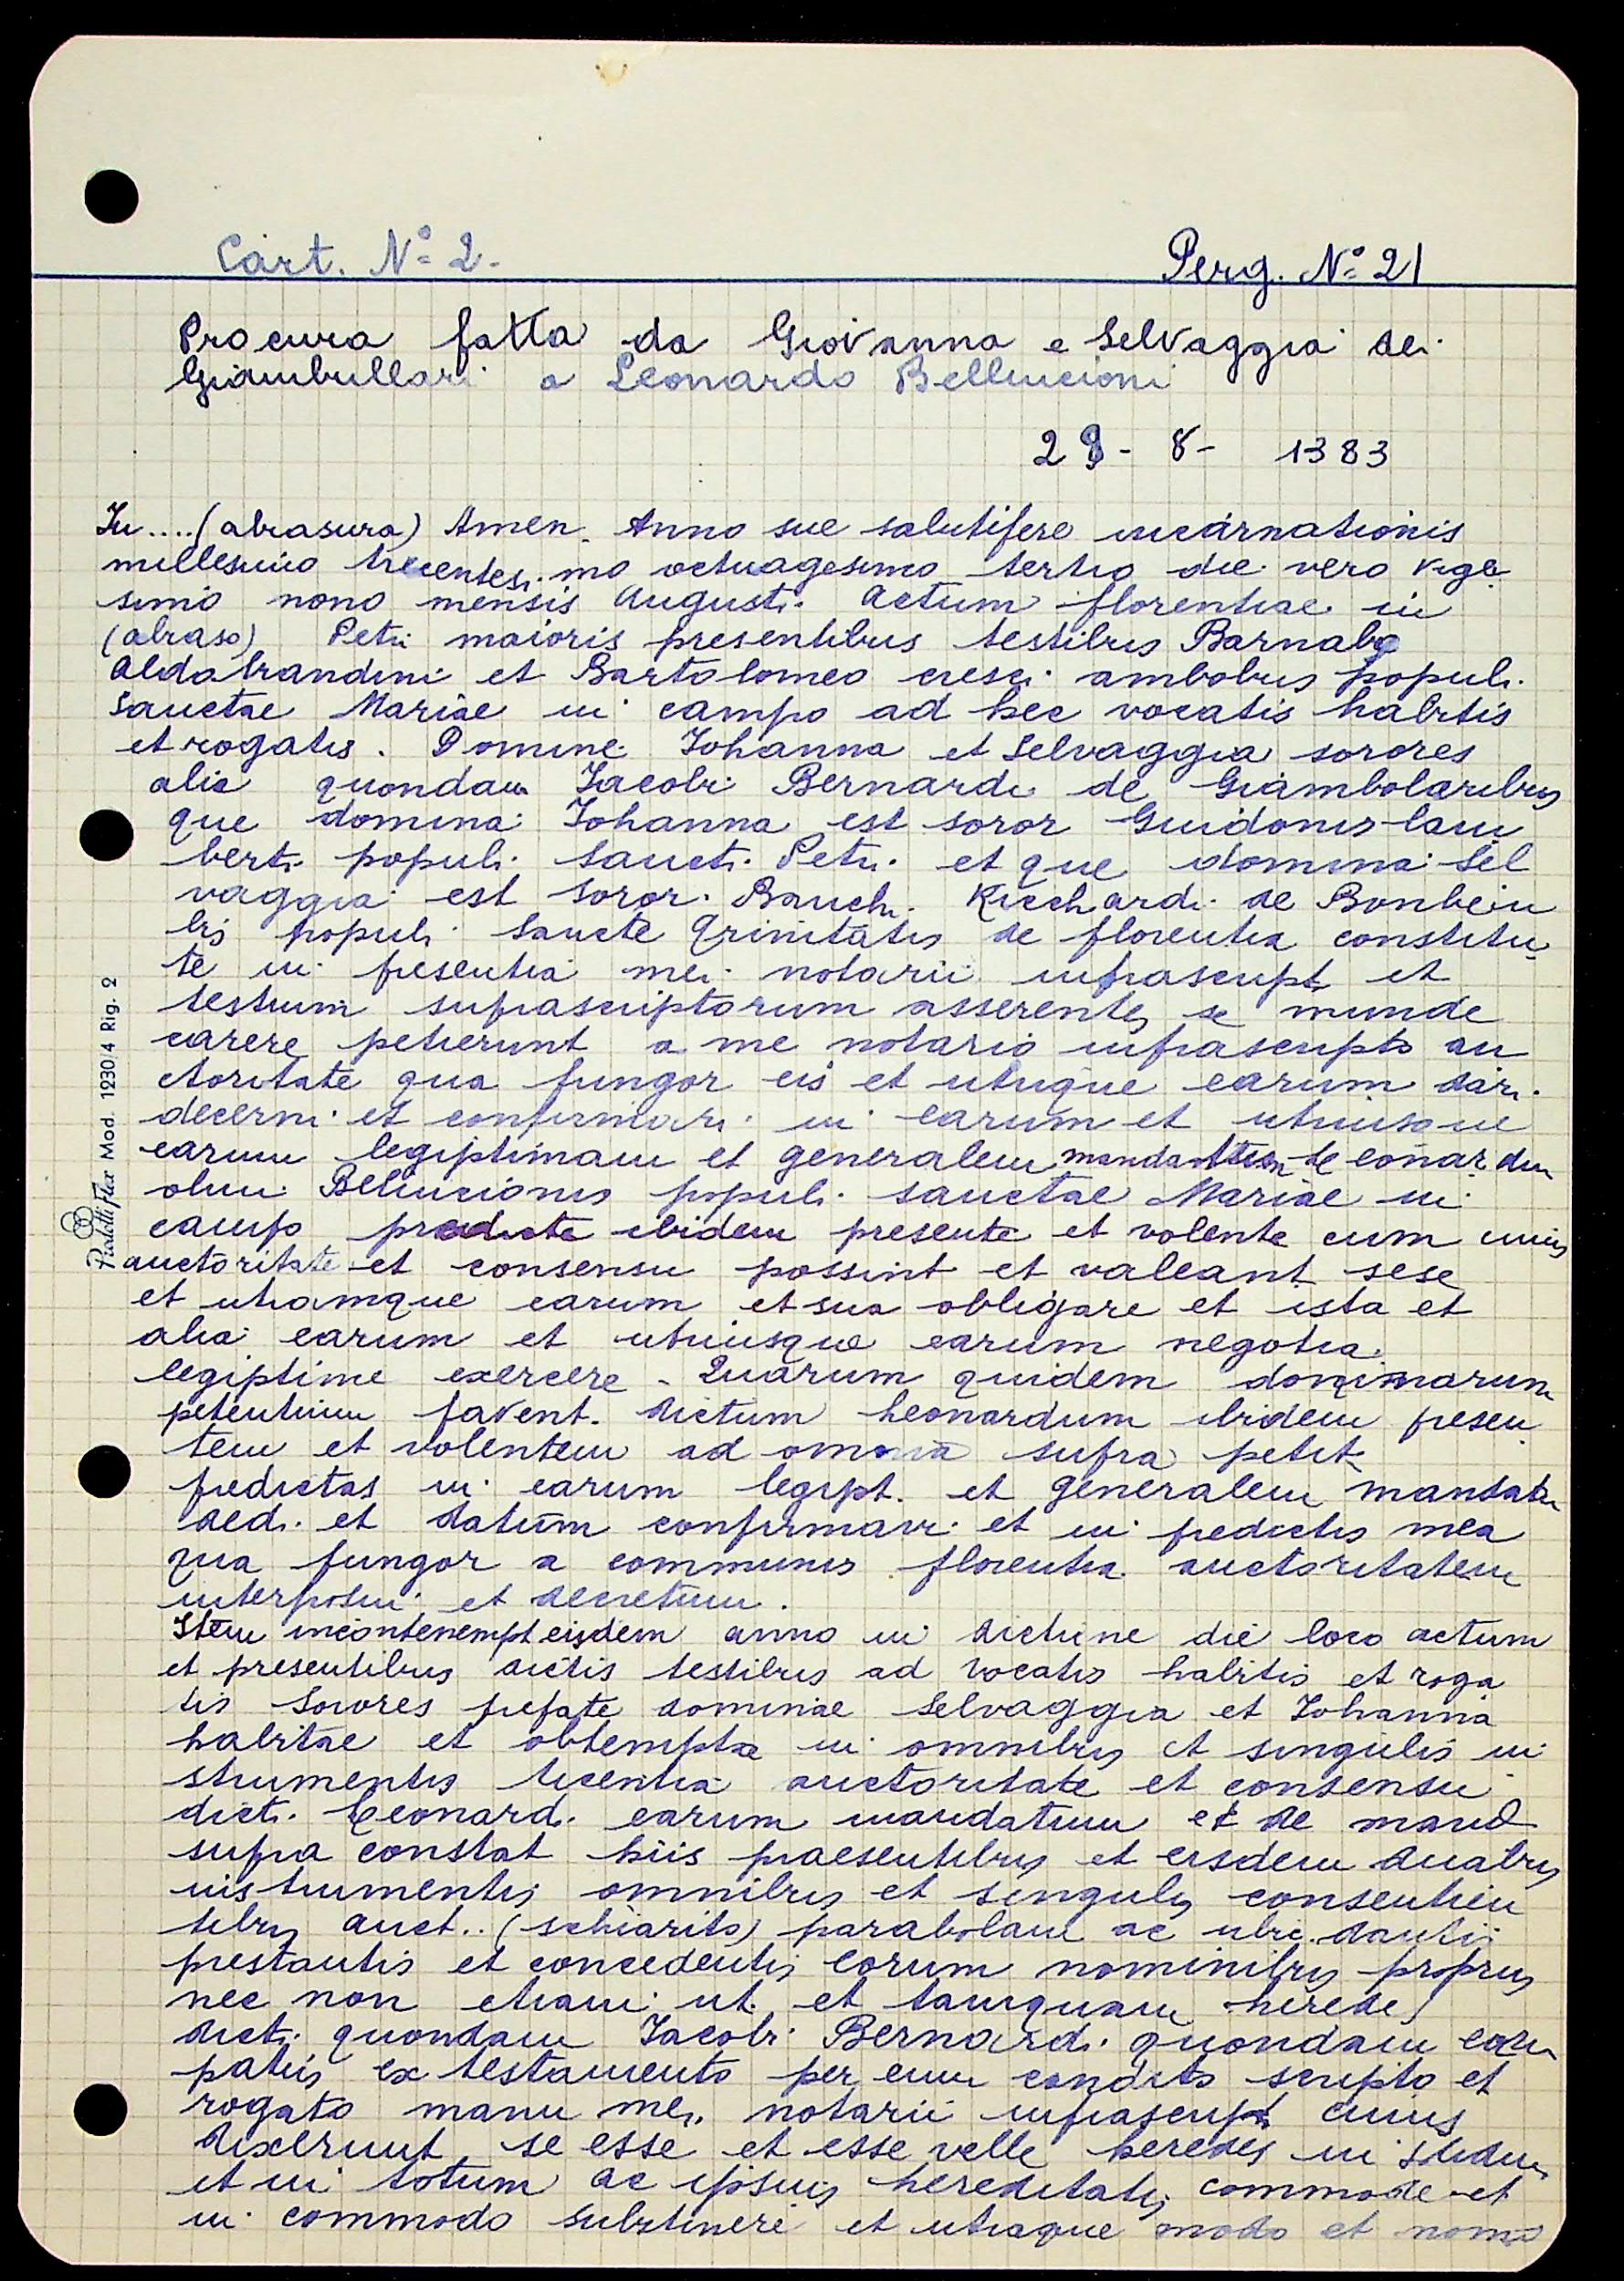 Cart. N° 2.
Perg. N° 21
Procura fatta da Giovanna e Selvaggia dei
Giambullari a Leonardo Bellincioni
29 - 8 - 1383
In .... (abrasura) Amen. Anno sue salutifere incarnationis
millesimo trecentesimo octuagesimo tertio die vero vige
simo nono mensis Augusti. Actum florentiae in
(abraso) Petri maioris presentibus testibus Barnaba
Aldobrandini et Bartolomeo cresci ambobus populi
Sanctae Mariae in campo ad hec vocatis habitis
et rogatis. Domine Johanna et Selvaggia sorores
alie quondam Jacobi Bernardi de Giambolaribus
que domina Johanna est soror Guidonis lam
berti populi Sancti Petri et que domina Sel
vaggia est soror Banchi Ricchardi de Bonbein
lis populi Sancte Trinitatis de florentia constitu
te in presentia mei notarii infrascript et
testium suprascriptorum asserentes se munde
carere petierunt a me notario infrascripto au
ctoritate qua fungor eis et utrique earum dari
decerni et confirmari in earum et utriusque
earum legiptimam et generalem Leonardum
olim Bellincionis populi sanctae Mariae in
campo predicte ibidem presente et volente cum cuius
auctoritate et consensu possint et valeant sese
et utramque earum et sua obligare et ista et
alia earum et utriusque earum negotia
legiptime exercere - Quarum quidem dominarum
petentium favent. dictum Leonardum ibidem presen
tem et volentem ad omnia supra petit
predictas in earum legipt. et generalem mandatu
dedi et datum confirmavi et in predictis mea
qua fungor a communis florentia auctoritatem
interposui et decretum.
Item incontenempt eisdem anno in dictine die loco actum
et presentibus dictis testibus ad vocatis habitis et roga
tis Sorores prefate dominae Selvaggia et Johanna
habitae et obtempta in omnibus et singulis in
strumentis licentia auctoritate et consensu
dicti Leonardi earum mandatum et de mand
supra constat hiis praesentibus et eisdem duabus
instrumentis omnibus et singulis consentien
tibus auct.. (schiarito) parabolam ac ubi dantis
prestantis et concedentis eorum nominibus propriis
nec non etiam ut et tamquam heredes
dicti quondam Jacobi Bernardi quondam earu
patris ex testamento per eum condito scripto et
rogato manu mei notarii infrascript cuius
dixerunt se esse et esse velle heredes in
et in totum ac ipsius hereditatis commode et
in commodo subtinere et utraque modo et nomi
Pratelli Flex Mod. 1230/4 Rig. 2